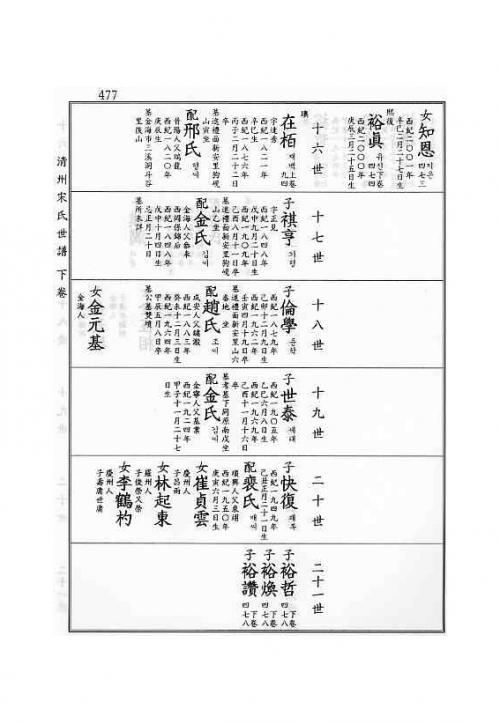 477
清州宋氏世譜 下卷
女知恩 지은
西紀二○○一年
辛巳二月二十七日生
四七三
熙復
裕眞 유진 下卷 四七四
西紀二○○○年
庚辰三月二十五日生
十六世
在栢 재백 上卷 九四
字達秀
西紀一八二一年
辛巳生
西紀一八七六年
丙子二月二十二日
卒
墓進禮面新安里狗峴
山寅坐
配邢氏 형씨
晋陽人父鳴龍
西紀一八二○年
庚辰生
墓金海市三溪洞斗谷
里後山
十七世
子祺亨 기형
字正見
西紀一八四八年
戊申九月二十日生
西紀一九○九年
己酉八月十一日卒
墓進禮面新安里狗峴
山乙坐
配金氏 김씨
金海人父泰東
西岡孫錦后
西紀一八四八年
戊申十月四日生
忌正月二十日
墓所未詳
十八世
子倫學 윤학
西紀一八七九年
己卯十二月九日生
西紀一九五二年
壬辰四月十九日卒
墓進禮面新安里山六
番地 坐
配趙氏 조씨
咸安人父鏞瀲
西紀一八八三年
癸未十二月三日生
西紀一九六四年
甲辰五月八日卒
墓公墓雙墳
女金元基
金海人
十九世
子世泰 세태
西紀一九○五年
乙巳六月八日生
西紀一九六九年
己酉十一月十六日
卒
墓考墓下同原南戌坐
配金氏 김씨
金寧人父基業
西紀一九二四年
甲子十一月二十七
日生
二十世
子快復 쾌복
西紀一九四九年
己丑正月二十一日生
配裵氏 배씨
順興人父東翊
西紀一九五○年
庚寅六月三日生
女崔貞雲
慶州人
子昌雨
女林起東
羅州人
子俊榮又榮
女李鶴杓
慶州人
子壽庸世庸
二十一世
子裕哲 下卷 四七八
子裕煥 下卷 四七八
子裕讚 下卷 四七八